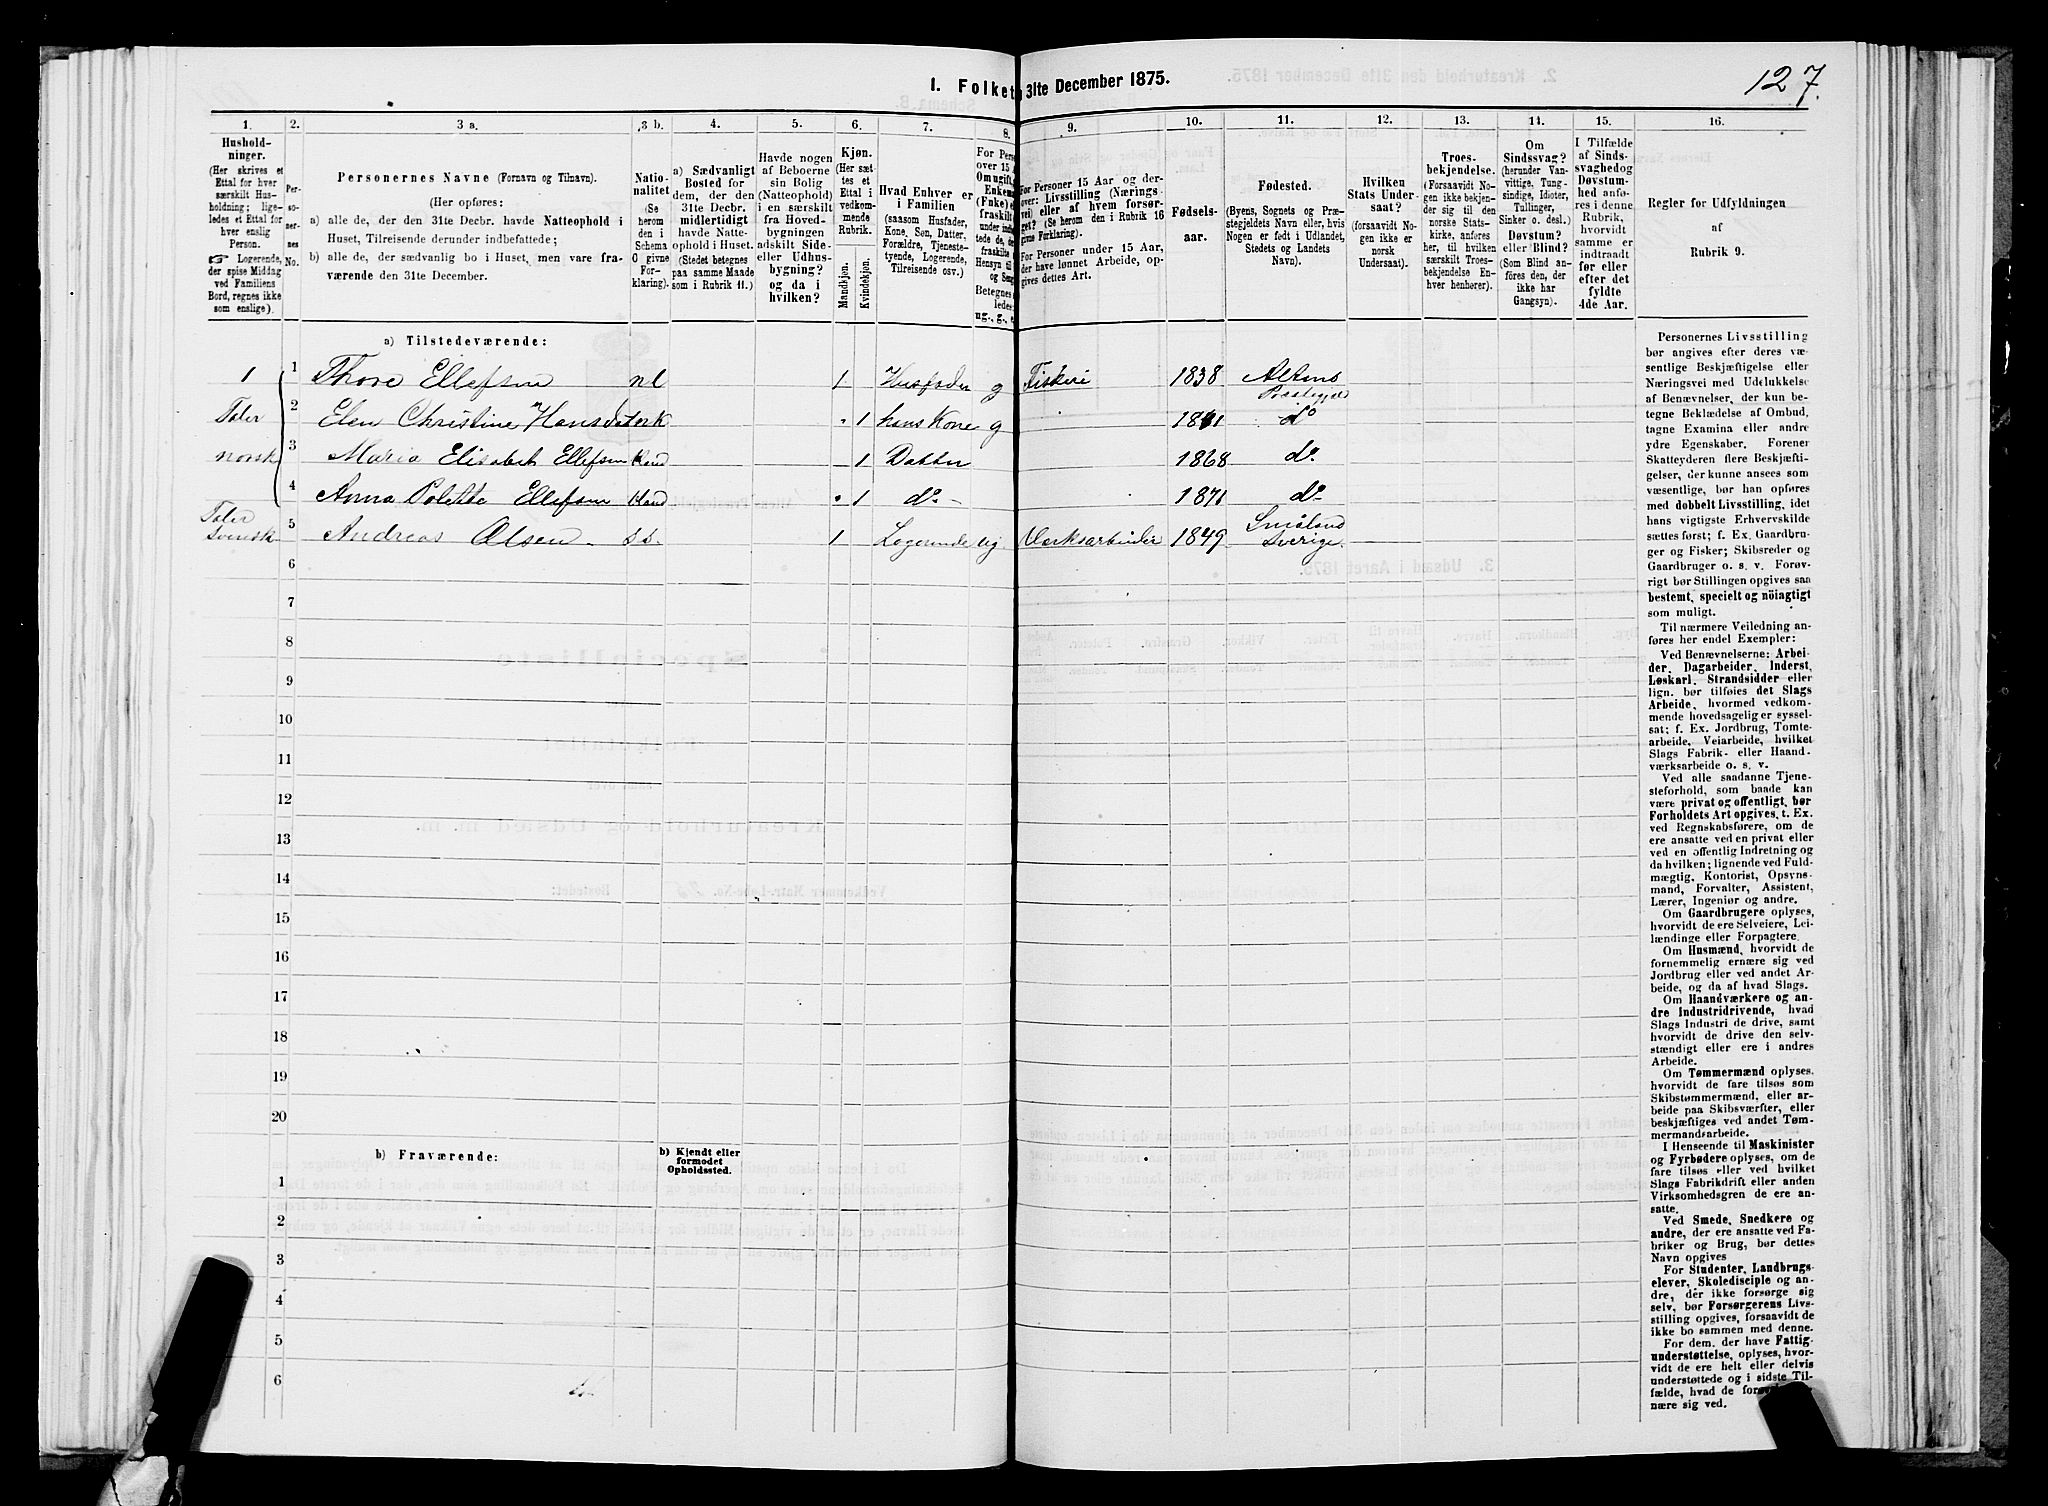 I. Folket
31te December 1875.
127.
1.
Hushold-
ninger.
(Her skrives et
Ettal for hver
særskilt Hus-
holdning; lige-
ledes et Ettal for
hver enslig
Person.
☞ Logerende,
der spise Middag
ved Familiens
Bord, regnes ikke
som enslige).
2.
Per-
so-
ner-
nes
No.
3 a.
Personernes Navne (Fornavn og Tilnavn).
(Her opføres:
a) alle de, der den 31te Decbr. havde Natteophold i
Huset, Tilreisende derunder indbefattede;
b) alle de, der sædvanlig bo i Huset, men vare fra-
værende den 31te December.
3 b.
Natio-
nalitet
(Se
herom
den i
Schema
O givne
For-
klaring).
4.
a) Sædvanligt
Bosted for
dem, der den
31te Decbr.
midlertidigt
havde Natte-
ophold i Huset.
(Stedet betegnes
paa samme Maade
som i Rubrik 11.)
5.
Havde nogen
af Beboerne
sin Bolig
(Natteophold)
i en særskilt
fra Hoved-
bygningen
adskilt Side-
eller Udhus-
bygning?
og da i
hvilken?
6.
Kjøn.
(Her sæt-
tes et
Ettal i
vedkom-
mende
Rubrik.
Mandkjøn.
Kvindekjøn.
7.
Hvad Enhver er
i Familien
(saasom Husfader,
Kone, Søn, Datter,
Forældre, Tjeneste-
tyende, Logerende,
Tilreisende osv.)
8.
For Pers
over 15 A
Omugift,
Enkem
(Fnke) e
fraskilt
under ind
tede de, d
fraskilte
Hensyn til
og Seng
Betegnes
ledes
ug., g., e
9.
For Personer 15 Aar og der-
over: Livsstilling (Nærings-
vei) eller af hvem forsør-
get? (Se herom den i Rubrik 16
givne Forklaring).
For Personer under 15 Aar,
der have lønnet Arbeide, op-
gives dettes Art.
10.
Fødsels-
aar.
11.
Fødested.
(Byens, Sognets og Præ-
stegjeldets Navn eller, hvis
Nogen er født i Udlandet,
Stedets og Landets
Navn).
12.
Hvilken
Stats Under-
saat?
(forsaavidt No-
gen ikke er
norsk
Undersaat).
13.
Troes-
bekjendelse.
(Forsaavidt No-
gen ikke bekjen-
der sig til den
norske Stats-
kirke, anføres
her, til hvilken
særskilt Troes-
bekjendelse En-
hver henhører).
14.
Om
Sindssvag?
(herunder Van-
vittige, Tung-
sindige, Idioter,
Tullinger,
Sinker o. desl.)
Døvstum?
eller Blind?
(Som Blind an-
føres den, der
ikke har
Gangsyn).
15.
I Tilfælde
af Sinds-
svaghed og
Døvstum-
hed anfø-
res i denne
Rubrik,
hvorvidt
samme er
indtraadt
før eller
efter det
fyldte
4de Aar.
16.
Regler for Udfyldningen
af
Rubrik 9.
a) Tilstedeværende:
1 1 Thore Ellefsen nl 1 Husfader g Fiskeri 1838 Altens Præstegjeld
Taler 2 Elen Christine Hansdat nsk 1 hans Kone g do
norsk 3 Maria Elisabet Ellefsen Kand 1 Datter 1868 do
4 Anna Polette Ellefsen Kand 1 do 1871 do
Taler svensk 5 Andreas Olsen s.s. 1 Logerende ug. Værksarbeider 1849 Småland Sverige
6
7
8
9
10
11
12
13
14
15
16
17
18
19
20
b) Fraværende:
b) Kjendt eller
formodet
Opholdssted.
1
2
3
4
5
6
Personernes Livsstilling
bør angives efter deres væ-
sentlige Beskjæftigelse eller
Næringsvei med Udelukkelse
af Benævnelser, der kun be-
tegne Beklædelse af Ombud,
tagne Examina eller andre
ydre Egenskaber. Forener
Skatteyderen flere Beskjæfti-
gelser, der kunne ansees som
væsentlige, bør han opføres
med dobbelt Livsstilling, idet
hans vigtigste Erhvervskilde
sættes først; f. Ex. Gaardbru-
ger og Fisker; Skibsreder og
Gaardbruger o. s. v. Forøv-
rigt bør Stillingen opgives saa
bestemt, specielt og nöiagtigt
som muligt.
Til nærmere Veiledning an-
føres her endel Exempler:
Ved Benævnelserne: Arbei-
der, Dagarbeider, Inderst,
Løskarl, Strandsidder eller
lign. bør tilføies det Slags
Arbeide, hvormed vedkom-
mende hovedsagelig er syssel-
sat; f. Ex. Jordbrug, Tomte-
arbeide, Veiarbeide, hvilket
Slags Fabrik- eller Haand-
værksarbeide o. s. v.
Ved alle saadanne Tjene-
steforhold, som baade kan
være privat og offentligt, bør
Forholdets Art opgives, t. Ex.
ved Regnskabsførere, om de
ere ansatte ved en privat eller
ved en offentlig Indretning og
da hvilken; lignende ved Fuld-
mægtig, Kontorist, Opsyns-
mand, Forvalter, Assistent,
Lærer, Ingeniør og andre.
Om Gaardbrugere oplyses,
hvorvidt de ere Selveiere, Lei-
lændinge eller Forpagtere.
Om Husmænd, hvorvidt de
fornemmelig ernære sig ved
Jordbrug eller ved andet Ar-
beide, og da af hvad Slags.
Om Haandværkere og an-
dre Industridrivende, hvad
Slags Industri de drive, samt
hvorvidt de drive den selv-
stændigt eller ere i andres
Arbeide.
Om Tømmermænd oplyses,
hvorvidt de fare tilsøs som
Skibstømmermænd, eller ar-
beide paa Skibsværfter, eller
beskjæftiges ved andet Tøm-
mermandsarbeide.
I Henseende til Maskinister
og Fyrbødere oplyses, om de
fare tilsøs eller ved hvilket
Slags Fabrikdrift eller anden
Virksomhedsgren de ere an-
satte.
Ved Smede, Snedkere og
andre, der ere ansatte ved Fa-
briker og Brug, bør dettes
Navn opgives
For Studenter, Landbrugs-
elever, Skoledisciple og an-
dre, der ikke forsørge sig
selv, bør Forsørgerens Livs-
stilling opgives, forsaavidt de
ikke bo sammen med denne.
For dem, der have Fattig-
understøttelse, oplyses, hvor-
vidt de ere helt eller delvis
understøttede og i sidste Til-
fælde, hvad de
nære sig ved.